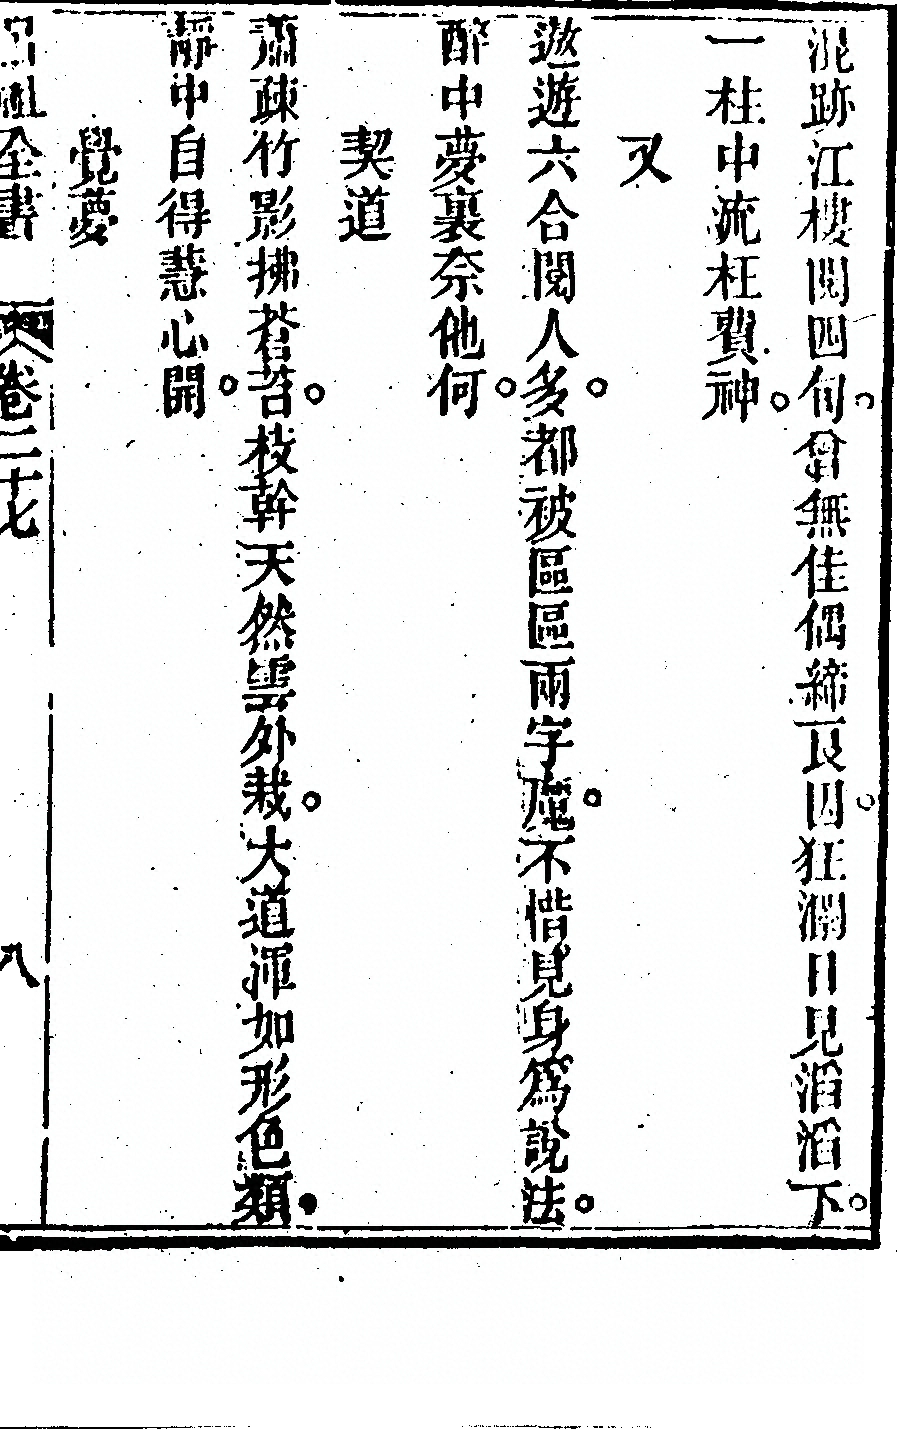 混跡江樓閱四旬○曾無佳偶締良因○狂瀾日見滔滔下○
一柱中流枉費神○
又
遨遊六合閱人多○都被區區兩字魔○不惜見身爲說法○
醉中夢裏奈他何○
契道
肅疎竹影拂蒼苔○枝幹天然雲外栽○大道渾如形色類●
靜中自得慧心開○
覺夢
呂祖全書 卷二十七 八